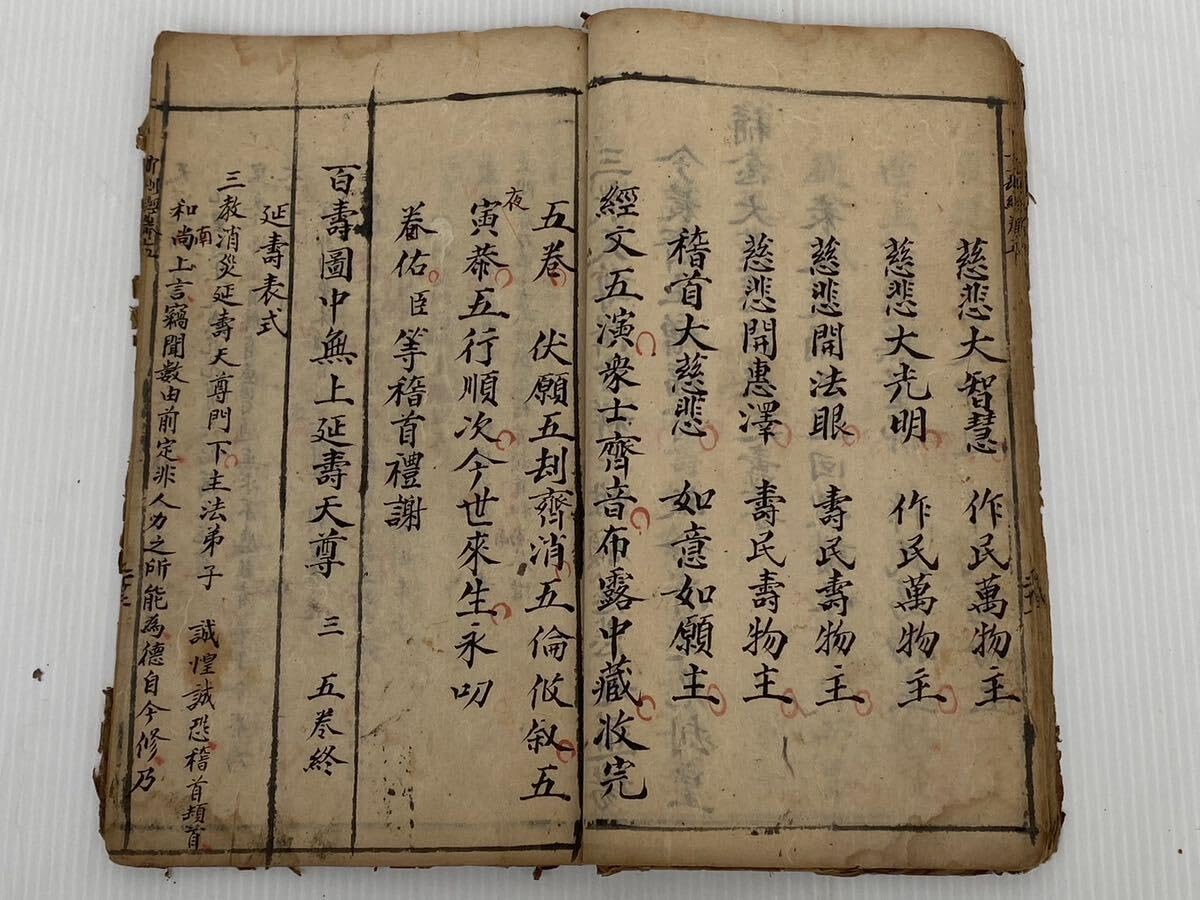 慈悲大智慧 作民萬物主
慈悲大光明 作民萬物主
慈悲開法眼 壽民壽物主
慈悲開惠澤 壽民壽物主
稽首大慈悲 如意如願主
經文五演衆士齊音布露中藏收完
五卷 伏願五刦齊消五倫攸叙五
夜
寅恭五行順次今世來生永叨
眷佑臣等稽首禮謝
百壽圖中無上延壽天尊 三 五卷終
延壽表式
三教消災延壽天尊門下主法弟子 誠惶誠恐稽首頓首
南
和尚上言竊聞數由前定非人力之所能為德自今修乃